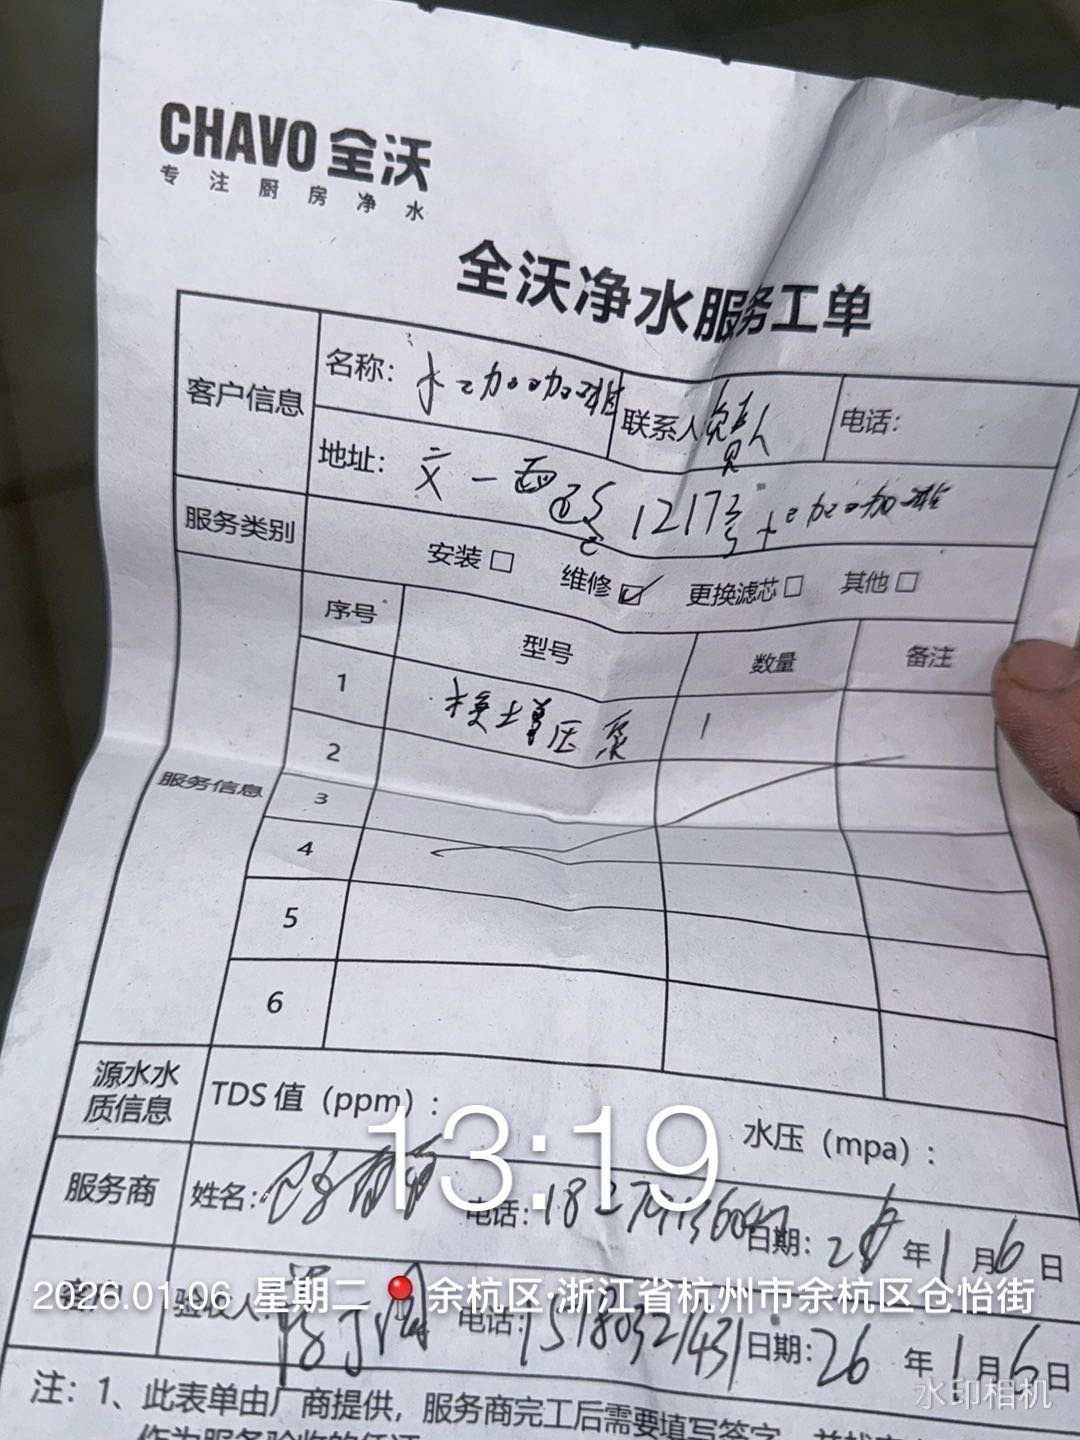 CHAVO 全沃
专注厨房净水
全沃净水服务工单
客户信息
名称：
联系人 负责人
电话：
地址： 文一西路1217号
服务类别
安装□ 维修☑ 更换滤芯□ 其他□
服务信息
序号 型号 数量 备注
1 换士增压泵 1
2
3
4
5
6
源水水质信息
TDS 值（ppm）：
水压（mpa）：
13:19
服务商 姓名： 电话： 日期： 年1月6日
客户 验收人： 电话：15180321431 日期：26年1月6日
2026.01.06 星期二 余杭区·浙江省杭州市余杭区仓怡街
注：1、此表单由厂商提供，服务商完工后需要填写签字，
作为服务验收的凭证
水印相机